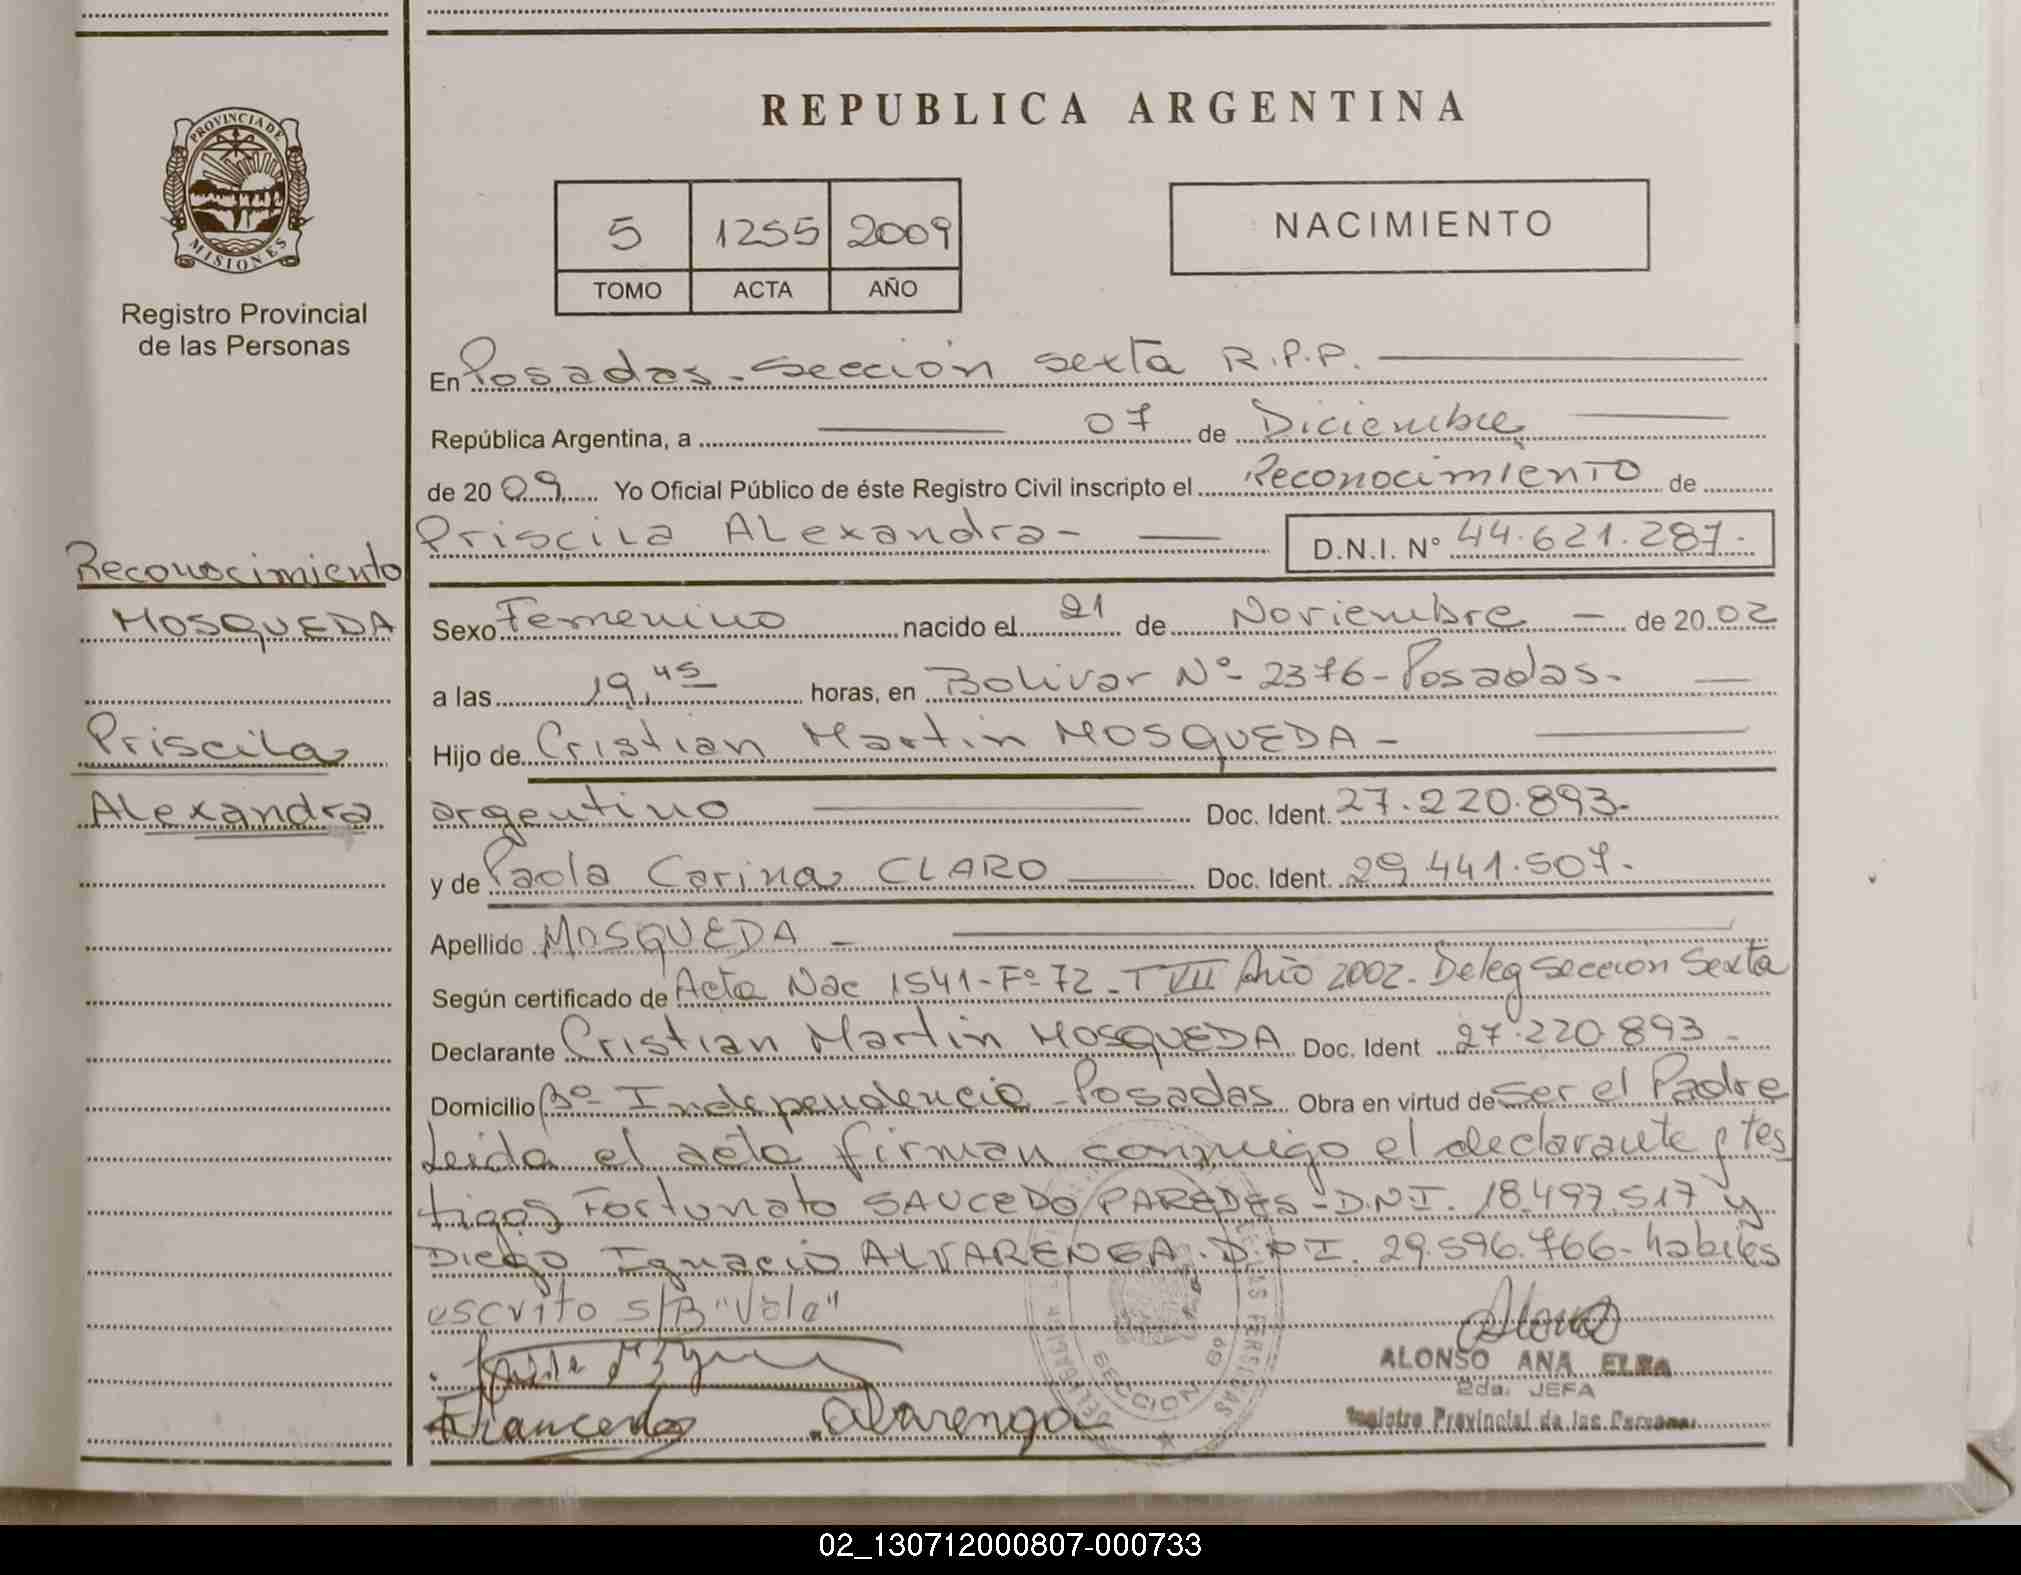 REPUBLICA ARGENTINA
PROVINCIA DE MISIONES
Registro Provincial
de las Personas
5 1255 2009
TOMO ACTA AÑO
NACIMIENTO
En Posadas - Sección Sexta R.P.P.
República Argentina, a 07 de Diciembre
de 2009 Yo Oficial Público de éste Registro Civil inscripto el Reconocimiento de
Priscila Alexandra - D.N.I. N° 44.621.287.-
Reconocimiento
MOSQUEDA
Priscila
Alexandra
Sexo Femenino nacido el 21 de Noviembre - de 2002
a las 19,45 horas, en Bolivar N°- 2376 - Posadas.-
Hijo de Cristian Martin MOSQUEDA -
argentino Doc. Ident. 27.220.893.-
y de Paola Carina CLARO Doc. Ident. 29.441.507.-
Apellido MOSQUEDA -
Según certificado de Acta Nac 1541 - F° 72 - T VII Año 2002 - Deleg Seccion Sexta
Declarante Cristian Martin MOSQUEDA Doc. Ident 27.220.893 -
Domicilio B° Independencia - Posadas Obra en virtud de ser el Padre
Leida el acta firman conmigo el declarante y tes
tigos Fortunato SAUCEDO PAREDES - D.N.I. 18.497.517 y
Diego Ignacio ALVARENGA. D.N.I. 29.596.766 - habiles
escrito S/B "Vale"
SECCION 6°
ALONSO ANA ELBA
2da. JEFA
Registro Provincial de las Personas
Alvarenga
02_130712000807-000733